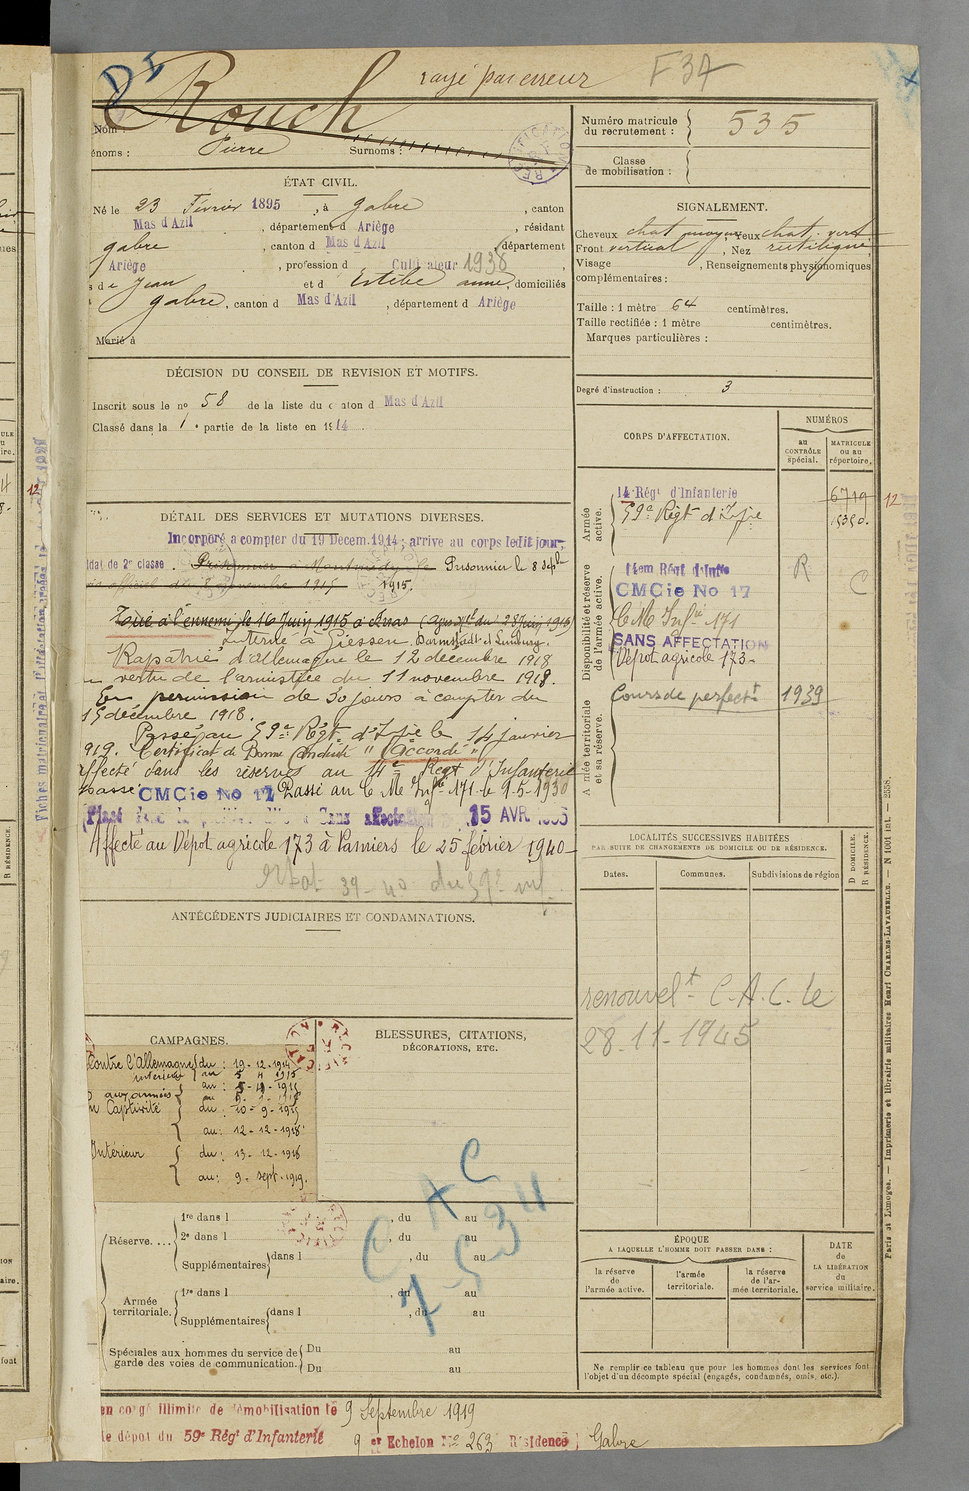 Rouch
rayé par erreur
F 34
Nom :
Prénoms : Pierre
Surnoms :
Numéro matricule
du recrutement : 535
Classe
de mobilisation :
ÉTAT CIVIL.
Né le 23 Février 1895, à Gabre, canton
Mas d'Azil, département d Ariège, résidant
Gabre, canton d Mas d'Azil, département
Ariège, profession d Cultivateur 1938
de Jean et d Estèbe Anne, domiciliés
Gabre, canton d Mas d'Azil, département d Ariège
Marié à
SIGNALEMENT.
Cheveux chat. moyen, yeux chat. vert
Front vertical, Nez rectiligne
Visage , Renseignements physionomiques
complémentaires :
Taille : 1 mètre 64 centimètres.
Taille rectifiée : 1 mètre centimètres.
Marques particulières :
Degré d'instruction : 3
DÉCISION DU CONSEIL DE REVISION ET MOTIFS.
Inscrit sous le no 58 de la liste du canton d Mas d'Azil
Classé dans la 1e partie de la liste en 1914.
DÉTAIL DES SERVICES ET MUTATIONS DIVERSES.
Incorporé a compter du 19 Decem. 1914; arrive au corps ledit jour,
soldat de 2e classe. Prisonnier le 8 Septbre
1915.
Tué à l'ennemi le 16 Juin 1915 à Arras
Interné à Giessen, Darmstadt et Limburg.
Rapatrié d'Allemagne le 12 décembre 1918
en vertu de l'armistice du 11 novembre 1918.
En permission de 30 jours à compter du
15 décembre 1918.
Passé au 59e Régt d'Infie le 14 janvier
1919. Certificat de Bonne Conduite "Accordé"
Affecté dans les réserves au 14e Regt d'Infanterie
passé CMCie No 17 Passé au C Me Infie 171 le 9-5-1930
15 AVR
Affecté au Dépôt agricole 173 à Pamiers le 25 février 1940
39-40 du 59e inf
CORPS D'AFFECTATION.
NUMÉROS
au
CONTRÔLE
spécial.
MATRICULE
ou au
répertoire.
Armée
active.
14e Régt d'Infanterie
59e Régt d'Infie
6719
12
15350.
Disponibilité et réserve
de l'armée active.
14em Regt d'Infie
CMCie No 17
C M Infie 171
SANS AFFECTATION
Dépôt agricole 173
R
C
Armée territoriale
et sa réserve.
Cours de perfectt 1939
LOCALITÉS SUCCESSIVES HABITÉES
PAR SUITE DE CHANGEMENTS DE DOMICILE OU DE RÉSIDENCE.
Dates.
Communes.
Subdivisions de région
D DOMICILE.
R RÉSIDENCE.
renouvelt C.A.C. le
28-11-1945
ANTÉCÉDENTS JUDICIAIRES ET CONDAMNATIONS.
CAMPAGNES.
Contre l'Allemagne du : 19-12-1914
intérieur au 5 4 1915
aux armées
en Captivité du : 10-9-1915
au : 12-12-1918
Intérieur du : 13-12-1918
au : 9 sept. 1919.
BLESSURES, CITATIONS,
DÉCORATIONS, ETC.
C A C
Réserve....
1re dans l , du au
2e dans l , du au
Supplémentaires dans l , du au
Armée
territoriale.
1re dans l , du au
Supplémentaires dans l , du au
Spéciales aux hommes du service de
garde des voies de communication.
Du au
Du au
ÉPOQUE
A LAQUELLE L'HOMME DOIT PASSER DANS :
la réserve
de
l'armée active.
l'armée
territoriale.
la réserve
de l'ar-
mée territoriale.
DATE
de
LA LIBÉRATION
du
service militaire.
Ne remplir ce tableau que pour les hommes dont les services font
l'objet d'un décompte spécial (engagés, condamnés, omis, etc.).
en congé illimité de démobilisation le 9 Septembre 1919
le dépôt du 59e Régt d'Infanterie 9 er Echelon No 263 Résidence Gabre
Paris et Limoges. — Imprimerie et librairie militaires Henri CHARLES-LAVAUZELLE. — N 1001 int. — 2558.